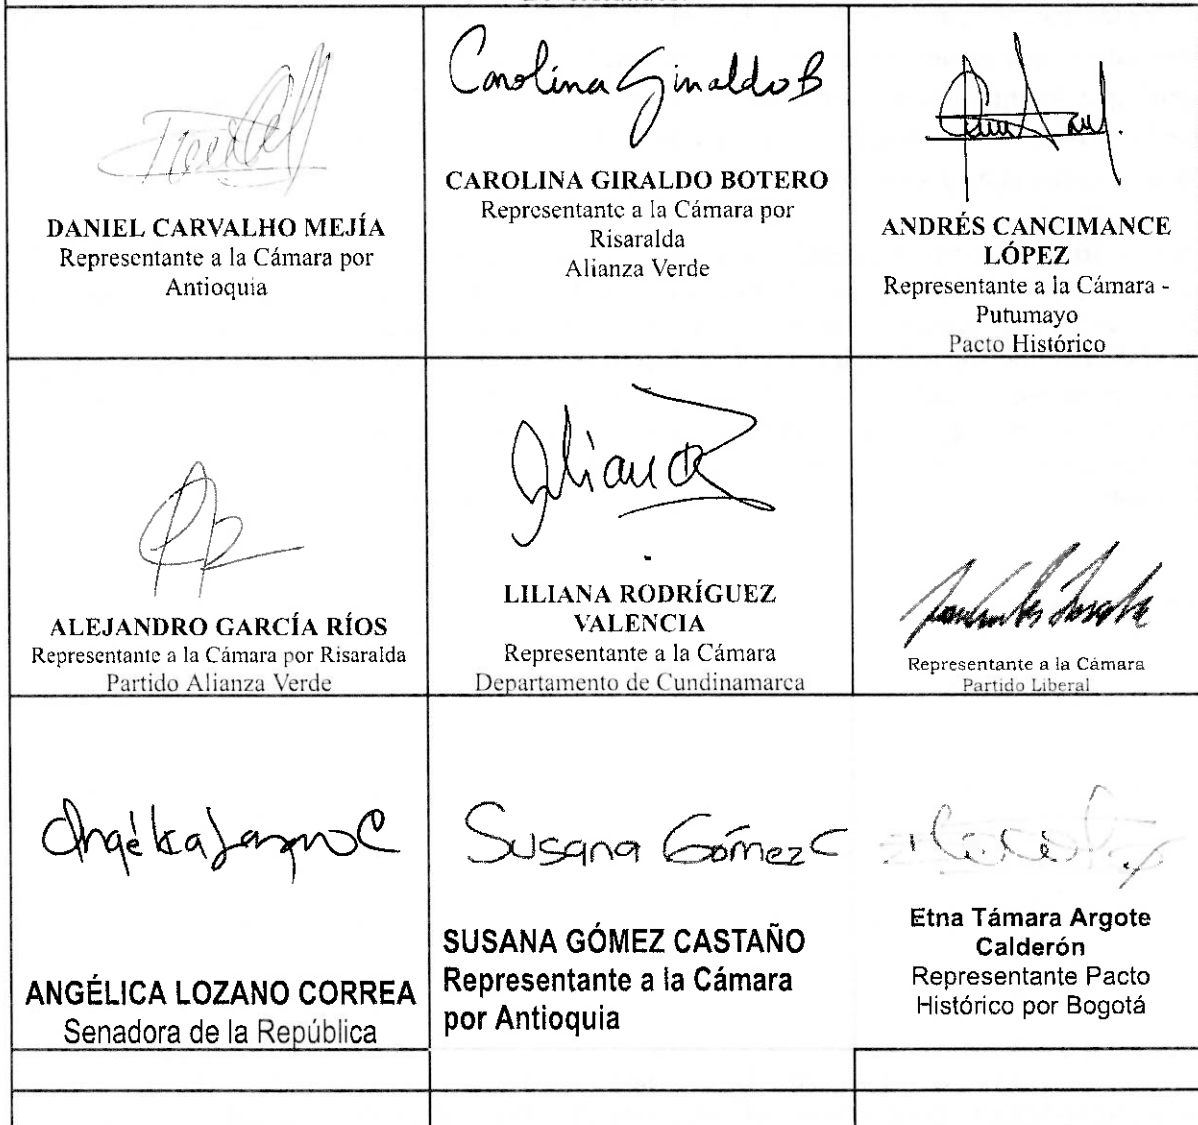 Carolina Giraldo B
DANIEL CARVALHO MEJÍA
Representante a la Cámara por
Antioquia
CAROLINA GIRALDO BOTERO
Representante a la Cámara por
Risaralda
Alianza Verde
ANDRÉS CANCIMANCE
LÓPEZ
Representante a la Cámara -
Putumayo
Pacto Histórico
ALEJANDRO GARCÍA RÍOS
Representante a la Cámara por Risaralda
Partido Alianza Verde
LILIANA RODRÍGUEZ
VALENCIA
Representante a la Cámara
Departamento de Cundinamarca
Representante a la Cámara
Partido Liberal
Angélica Lozano C
ANGÉLICA LOZANO CORREA
Senadora de la República
Susana Gómez C
SUSANA GÓMEZ CASTAÑO
Representante a la Cámara
por Antioquia
Etna Támara Argote
Calderón
Representante Pacto
Histórico por Bogotá